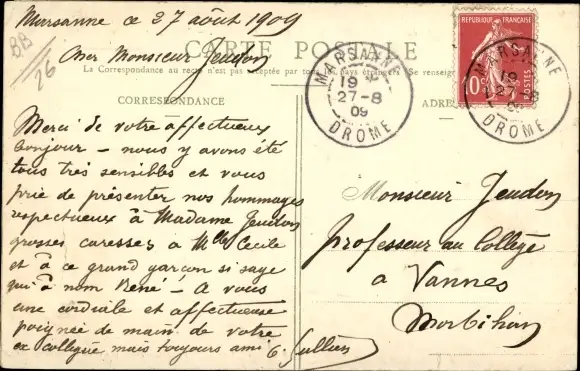 Marsanne ce 27 août 1909
BB
26
Cher Monsieur Jeudon
CARTE POSTALE
La Correspondance au recto n'est pas acceptée par tous les pays étrangers. Se renseig
CORRESPONDANCE
ADRE
Merci de votre affectueux
bonjour – nous y avons été
tous très sensibles et vous
prie de présenter nos hommages
respectueux à Madame Jeudon
grosses caresses à Mlle Cécile
et à ce grand garçon si sage
qui a nom René – A vous
une cordiale et affectueuse
poignée de main de votre
ex collègue mais toujours ami C. Jullien
MARSANNE
19
27-8
09
DROME
REPUBLIQUE FRANÇAISE
10
POSTES
MARSANNE
19
27-8
09
DROME
Monsieur Jeudon
Professeur au Collège
à Vannes
Morbihan